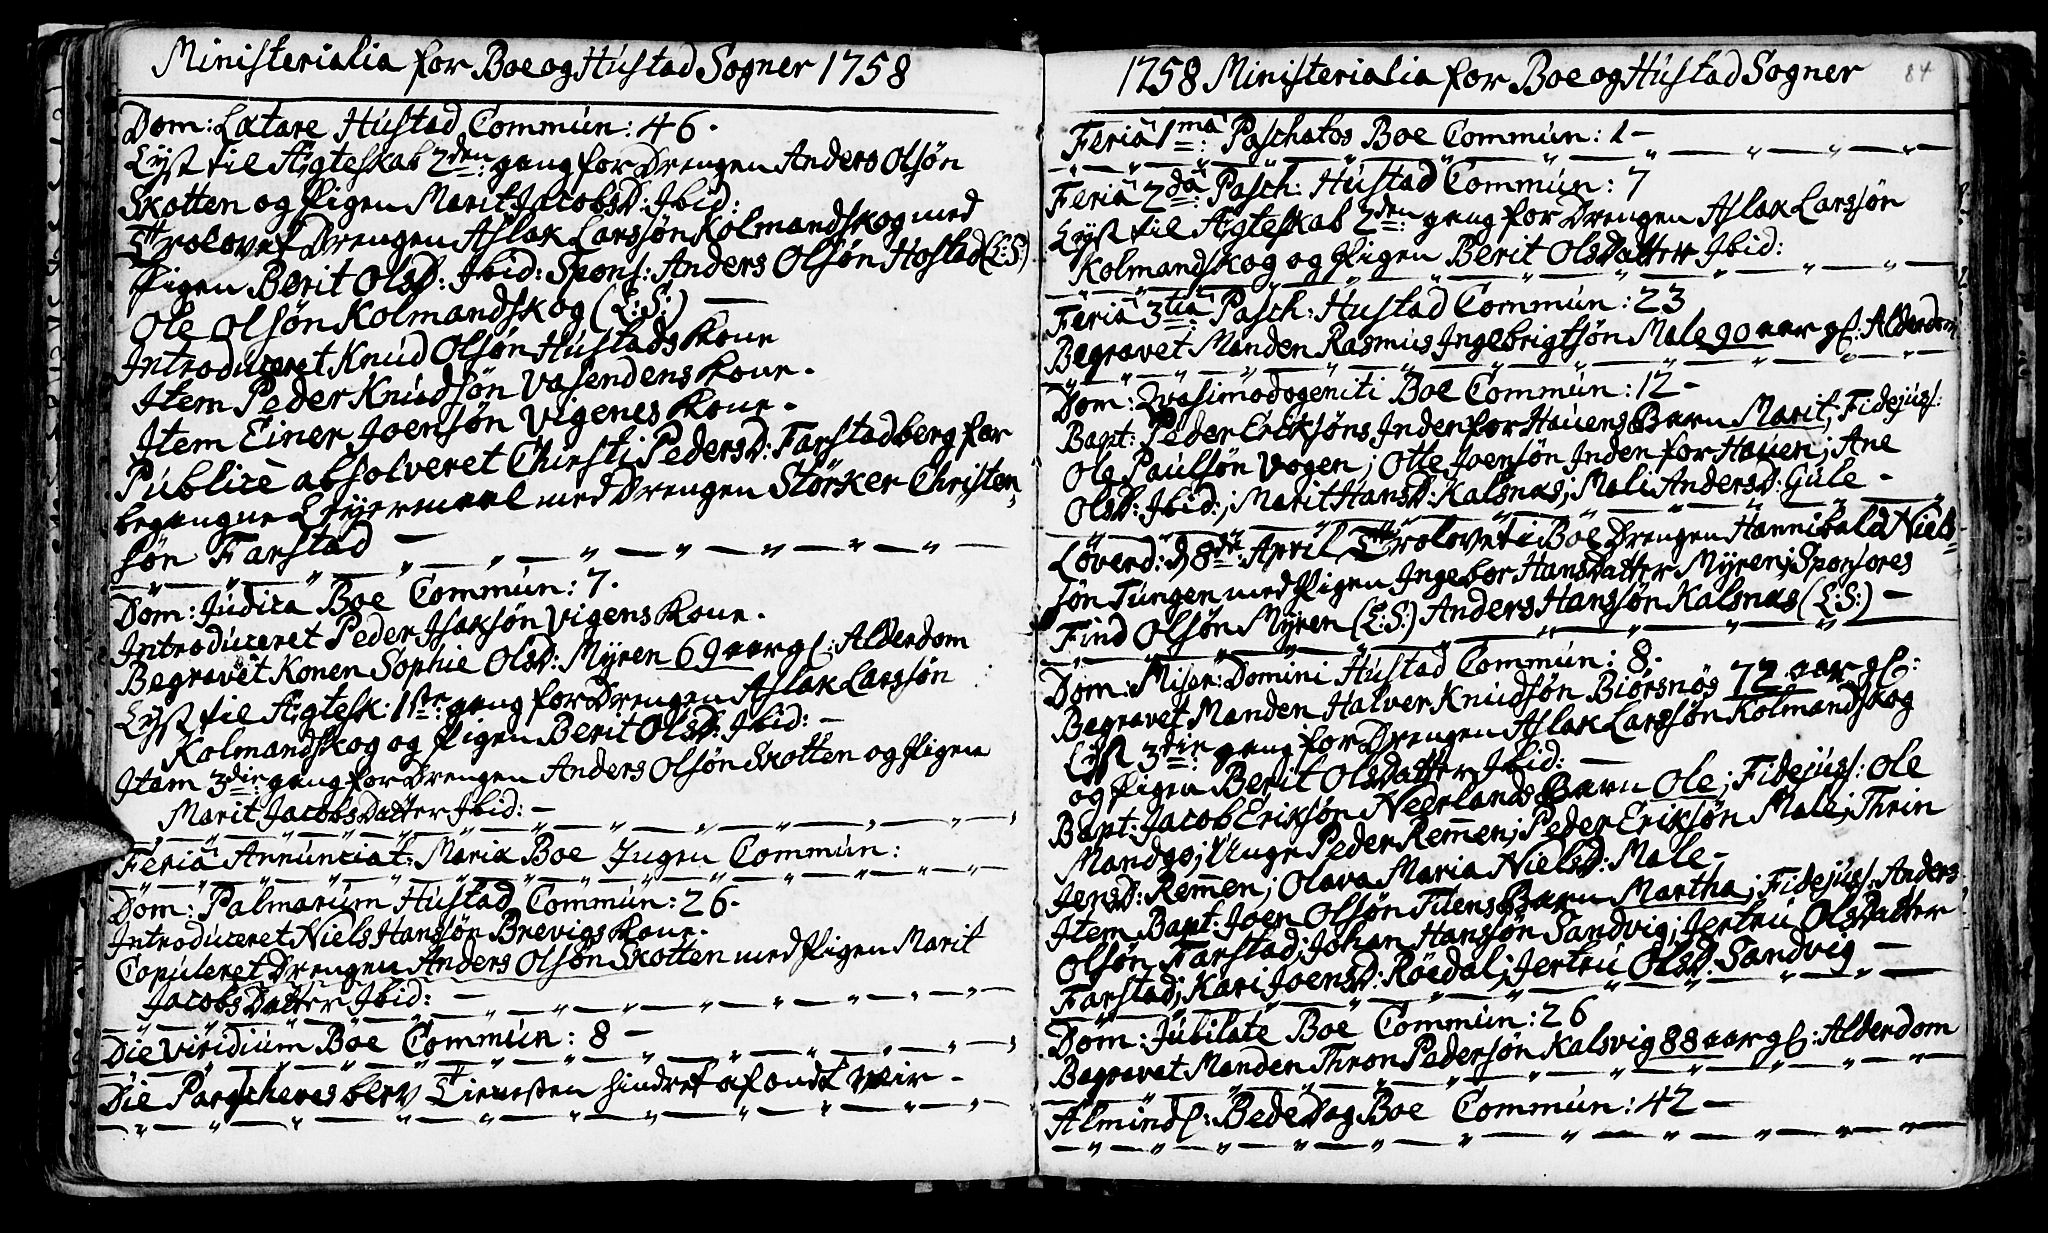 Ministerialia for Boe og Hústad Sogner 1758
Dom: Lætare Hústad Commún: 46.
Lÿst til Ægteskab 2den gang for Drengen Anders Olsøn
Skotten og Pigen Marit JacobsD: Ibid:
Trolovet Drengen Aslak Larssøn Kolmandskog med
Pigen Berit OlsD: Ibid: Spons: Anders Olsøn Hostad (L:S:)
Ole Olsøn Kolmandskog (L:S:) —
Introdúceret Knúd Olsøn Hústads Kone
Item Peder Knúdsøn Vasendens Kone.
Item Einer Joensøn Vigenes Kone.
Públicè absolveret Chirsti PedersD: Farstadberg for
begangne Leyermaal med Drengen Störker Christen,
søn Farstad —
Dom: Júdica Boe Commún: 7.
Introdúceret Peder Isaksøn Vigens Kone.
Begravet Konen Sophie OlsD: Mÿren 69 aar gl: Alderdom
Lÿst til Ægtesk: 1ste gang for Drengen Aslak Larssøn
Kolmandskog og Pigen Berit OlsD: Ibid: —
Item 3die gang for Drengen Anders Olsøn Skotten og Pigen
Marit JacobsDatter Ibid: —
Feriâ Annúnciat: Mariæ Boe Ingen Commún:
Dom: Palmarúm Hústad Commún: 26.
Introdúceret Niels Hanssøn Brevigs Kone.
Copúleret Drengen Anders Olsøn Skotten med Pigen Marit
JacobsDatter Ibid: —
Die Viridiúm Boe Commún: 8 —
Die Parascheves blev Tienesten hindret af ondt Veir —
1758 Ministerialia for Boe og Hústad Sogner
84
Feriâ 1ma: Paschatos Boe Commún: 1 —
Feriâ 2dâ: Pasch: Hústad Commún: 7
Lÿst til Ægteskab 2den gang for Drengen Aslak Larssøn
Kolmandskog og Pigen Berit OlsDatter Ibid:
Feriâ 3tiâ Pasch: Hústad Commún: 23
Begravet Manden Rasmus Ingebrigtsøn Male 90 aar gl: Alderdom
Dom: Qvasimodogeniti Boe Commún: 12 —
Bapt: Peder Eriksøns Indenfor Hauens Barn Marit; Fidejúss:
Ole Paulsøn Vogen; Otte Joensøn Inden for Hauen; Ane
OlsD: Ibid:; Marit HansD: Kalsnæs; Mali AndersD: Gúle —
Löverd: D 8de April Trolovet i Boe Drengen Hannibald Niels-
søn Túngen med Pigen Ingebor HansDatter Mÿren; Sponsores
Find Olsøn Mÿren (L:S:) Anders Hanssøn Kalsnæs (L:S:) —
Dom: Miser: Domini Hústad Commún: 8.
Begravet Manden Halver Knúdsøn Biörsnös 72 aar gl:
Lÿst 3die gang for Drengen Aslak Larssøn Kolmandskog
og Pigen Berit OlsDatter Ibid: —
Bapt: Jacob Eriksøn Neerlands Barn Ole; Fidejúss: Ole
Mandgo; Unge Peder Remen; Peder Eriksøn Male; Thrin
JensD: Remen; Olava Maria NielsD: Male —
Item Bapt: Joen Olsøn Tilens Barn Martha; Fidejúss: Anders
Olsøn Farstad; Johan Hanssøn Sandvig; Jertrú OlsDatter
Farstad; Kari JoensD: Röedal; Jertrú OlsD: Sandvig —
Dom: Júbilate Boe Commún: 26
Begravet Manden Thron Pedersøn Kalsvig 88 aar gl: Alderdom
Almindl: BedeDag Boe Commún: 42 —